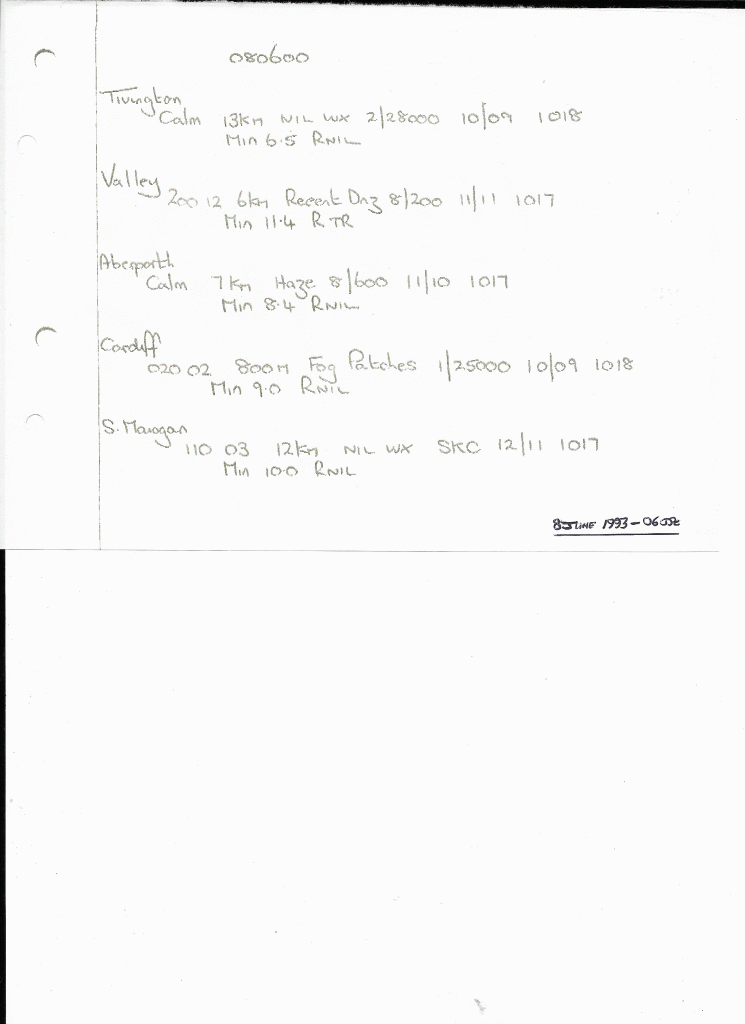 080600
Tivington
Calm 13KM NIL WX 2/28000 10/09 1018
Min 6.5 RNIL
Valley
200 12 6KM Recent Drz 8/200 11/11 1017
Min 11.4 R TR
Aberporth
Calm 7KM Haze 8/600 11/10 1017
Min 8.4 RNIL
Cardiff
020 02 800M Fog Patches 1/25000 10/09 1018
Min 9.0 RNIL
S. Mawgan
110 03 12KM NIL WX SKC 12/11 1017
Min 10.0 RNIL
8 JUNE 1993 - 06